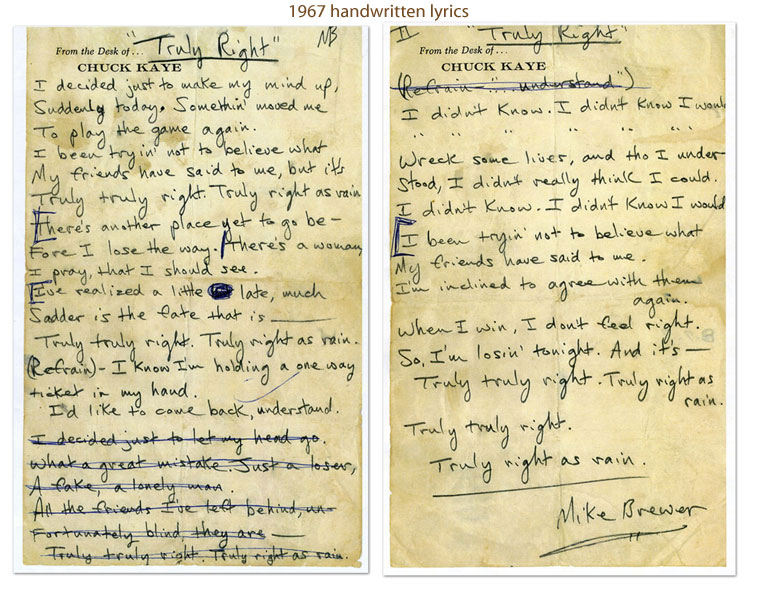 1967 handwritten lyrics
"Truly Right" MB
From the Desk of...
CHUCK KAYE
I decided just to make my mind up,
Suddenly today. Somethin' moved me
To play the game again.
I been tryin' not to believe what
My friends have said to me, but it's
Truly truly right. Truly right as rain
There's another place yet to go be-
Fore I lose the way. There's a woman,
I pray, that I should see.
I've realized a little late, much
Sadder is the fate that is ———
Truly truly right. Truly right as rain.
(Refrain) - I know I'm holding a one way
ticket in my hand.
I'd like to come back, understand.
I decided just to let my head go.
What a great mistake. Just a loser,
A fake, a lonely man.
All the friends I've left behind, un-
Fortunately blind they are —
Truly truly right. Truly right as rain.
II "Truly Right"
From the Desk of...
CHUCK KAYE
(Refrain - "... understand")
I didn't know. I didn't know I woul
" " " " " " "
Wreck some lives, and tho I under-
Stood, I didn't really think I could.
I didn't know. I didn't know I would
I been tryin' not to believe what
My friends have said to me.
I'm inclined to agree with them
again.
When I win, I don't feel right.
So, I'm losin' tonight. And it's —
Truly truly right. Truly right as
rain.
Truly truly right.
Truly right as rain.
Mike Brewer